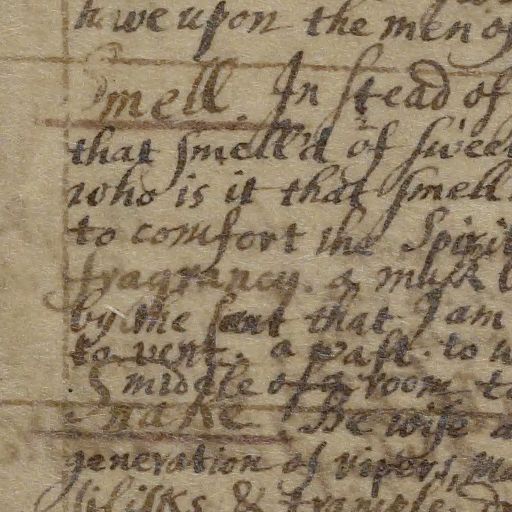 have upon the men of
Smell. In stead of
that smell'd of sweet
who is it that smell
to comfort the Spirit
fragrancy. a musk
by the sent that I am
to vent. a vast. to
middle of a room to
Snake Be wise a
generation of vipers,
& trample